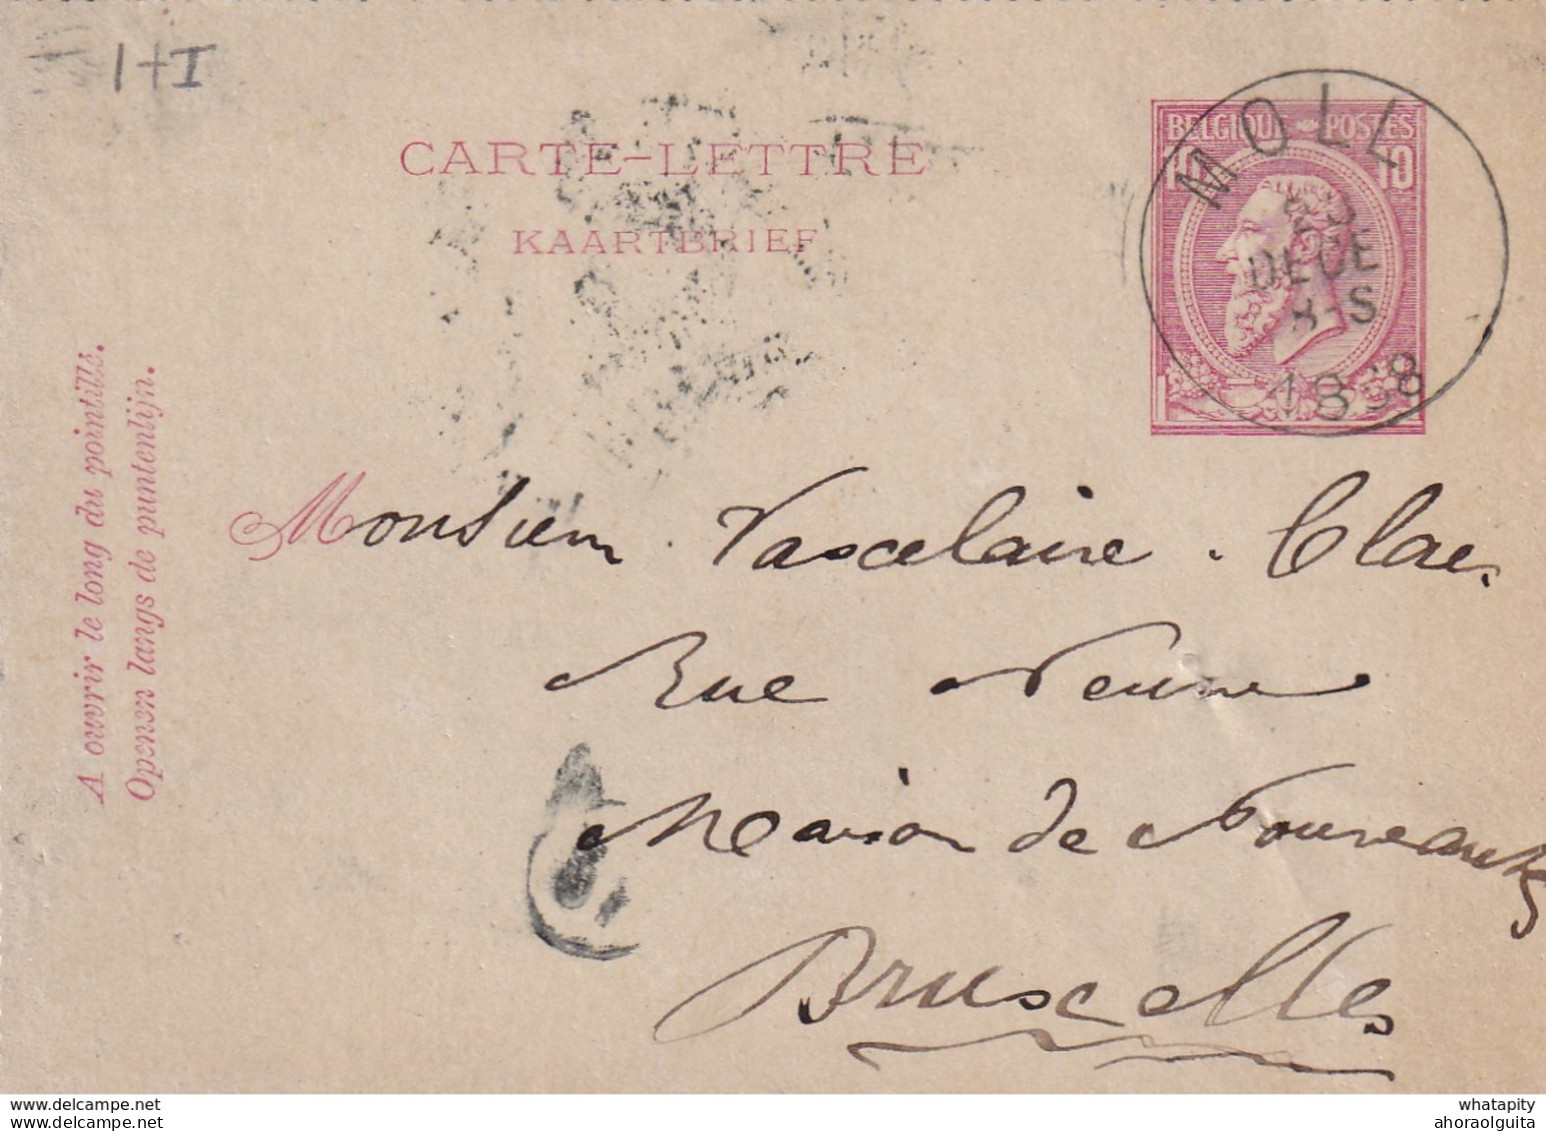 1+I
CARTE-LETTRE
KAARTBRIEF
BELGIQUE POSTES
10 10
MOLL
DECE
8-S
A ouvrir le long du pointillé.
Openen langs de puntenlijn.
Monsieur Vaxelaire. Claes.
Rue Neuve
Maison de Nouveautés
Bruxelles
whatapity
ahoraolguita